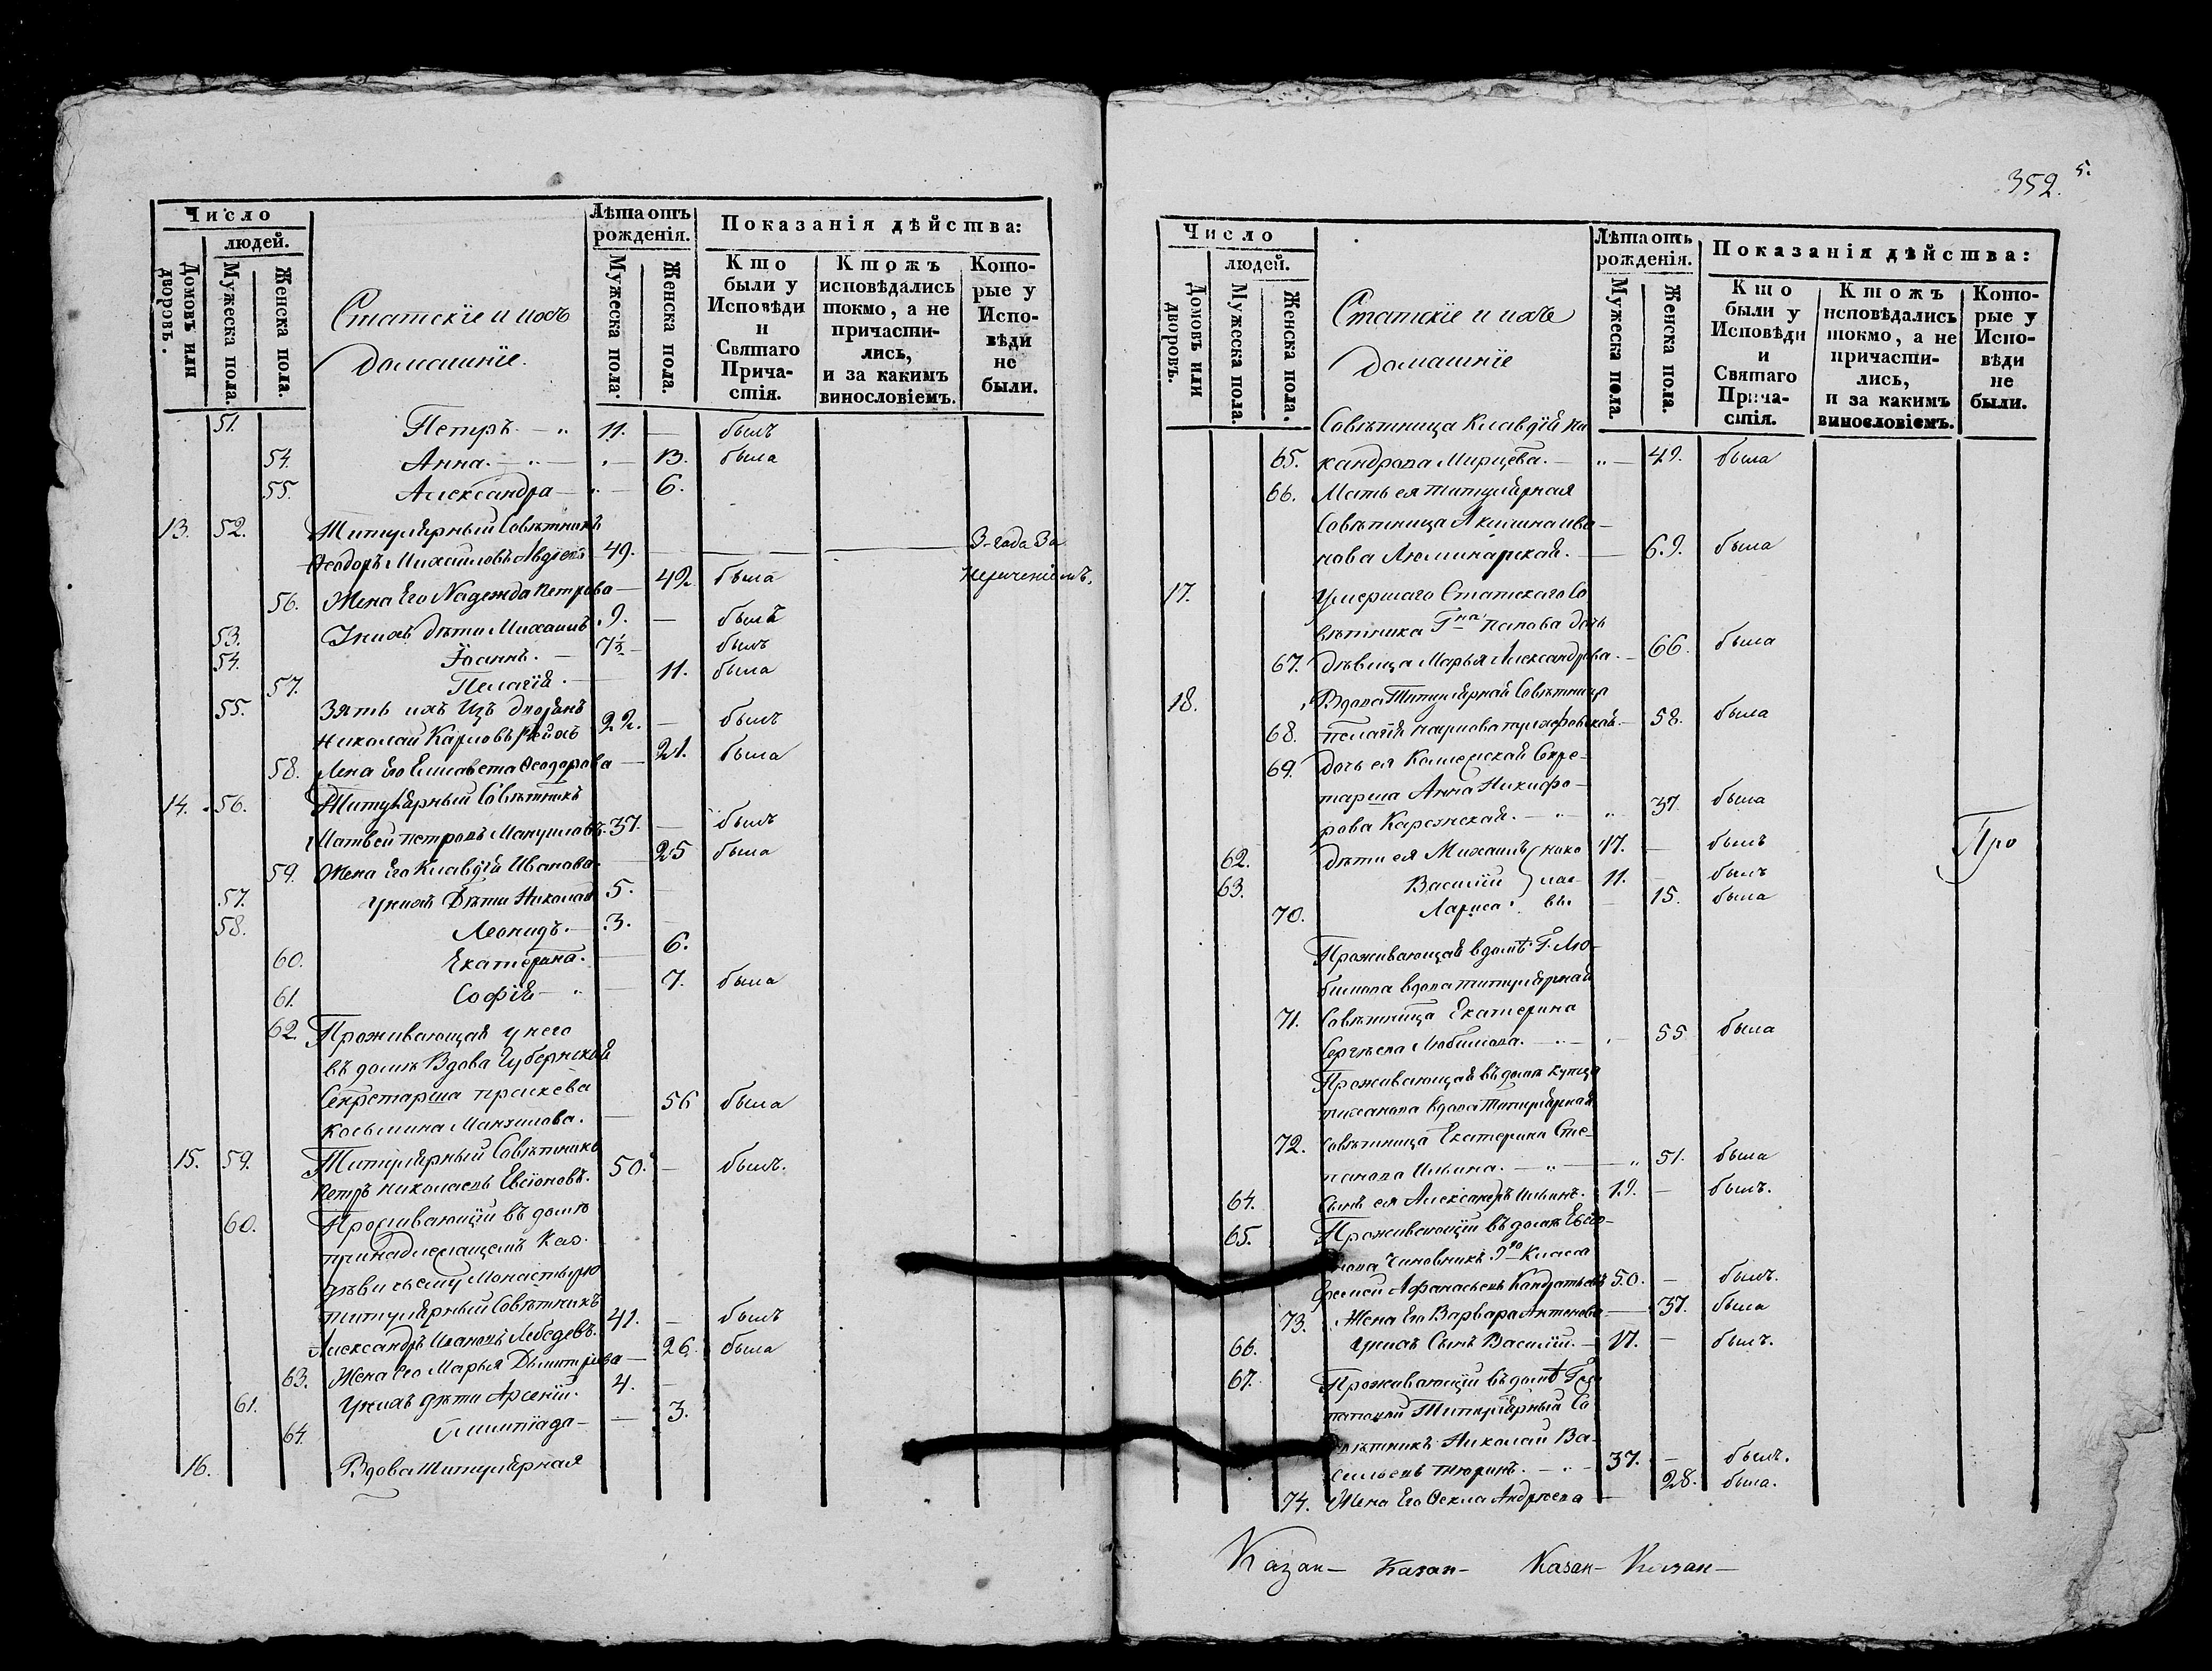 Число
людей.
Домовъ или дворовъ.
Мужеска пола.
Женска пола.
Статскіе и ихъ
домашніе.
Лѣта отъ рожденія.
Мужеска пола.
Женска пола.
Показанія дѣйства:
Кто были у Исповѣди и Святаго Прича-стія.
Ктожъ исповѣдались токмо, а не причасти-лись, и за какимъ винословіемъ.
Кото-рые у Испо-вѣди не были.
51. Петръ. 11. — былъ
54. Анна. — 13. была
55. Александра — 6.
13. 52. Титулярный Совѣтникъ
Ѳеодоръ Михаиловъ 49. — 3 года за
56. Жена Его Надежда Петрова — 42 была
53. У нихъ дѣти Михаилъ 9. — былъ
54. Іоаннъ. — 7½ былъ
57. Пелагія. — 11. была
55. Зять ихъ Изъ дворянъ
Николай Карловъ 22. — былъ
58. Жена Его Елисавета Ѳеодорова — 21. была
14. 56. Титулярный Совѣтникъ
Матвей Петровъ 37. — былъ
59. Жена Его Клавдія Иванова. — 25 была
57. У нихъ Дѣти Николай 5. —
58. Леонидъ. — 3. —
60. Екатерина. — 6.
61. Софія — 7. была
62. Проживающая у него
въ домѣ Вдова Губернская
Секретарша Праскева
Косьмина 56 была
15. 59. Титулярный Совѣтникъ
Петръ Николаевъ Евсіоновъ. 50. — былъ.
60. Проживающій въ домѣ
принадлежащемъ Каз.
дѣвичьему Монастырю
титулярный Совѣтникъ
Александръ Ивановъ Лебедевъ. 41. — былъ
63. Жена его Марья Дмитріева — 26. была
61. У нихъ дѣти Арсеній. 4. —
64. Олимпіада — 3.
16. Вдова Титулярная
352. 5.
Число
людей.
Домовъ или дворовъ.
Мужеска пола.
Женска пола.
Статскіе и ихъ
домашніе
Лѣта отъ рожденія.
Мужеска пола.
Женска пола.
Показанія дѣйства:
Кто были у Исповѣди и Святаго Прича-стія.
Ктожъ исповѣдались токмо, а не причасти-лись, и за какимъ винословіемъ.
Кото-рые у Испо-вѣди не были.
Совѣтница Клавдія Ни
65. кандрова Мирцева. — 49. была
66. Мать ея титулярная
Совѣтница Акилина Ива-
нова 69. была
17. Умершаго Статскаго Со
вѣтника Г-на Панова дочь
67. дѣвица Марья Александрова. — 66. была
18. Вдова Титулярная Совѣтница
68. Пелагія 58. была
69. Дочь ея Коллежская Секре-
тарша Анна Никифо-
рова 37. была
62. Дѣти ея Михаилъ 17. — былъ
63. Василій 11. — былъ
70. Лариса. — 15. была
Про
Проживающая в домѣ Г. Лю-
бимова вдова титулярная
71. Совѣтница Екатерина
Сергѣева Любимова. — 55 была
Проживающая въ домѣ купца
Тиханова вдова Титулярная
72. Совѣтница Екатерина Сте-
панова Ильина. — 51. была
64. Сынъ ея Александръ Ильинъ. 19. — былъ.
65. Проживающій въ домѣ Евсіо-
нова Чиновникъ 9го Класса
Афанасьевъ Кондратьевъ 50. — былъ.
73. Жена Его Варвара Антонова — 37. была
66. У нихъ Сынъ Василій. — 17. — былъ.
67. Проживающій въ домѣ
Титулярный Со
вѣтникъ Николай Ва-
сильевъ Тюринъ. 37. — былъ.
74. Жена Его Ѳекла Андреева — 28. была.
Казан- Казан- Казан- Казан-